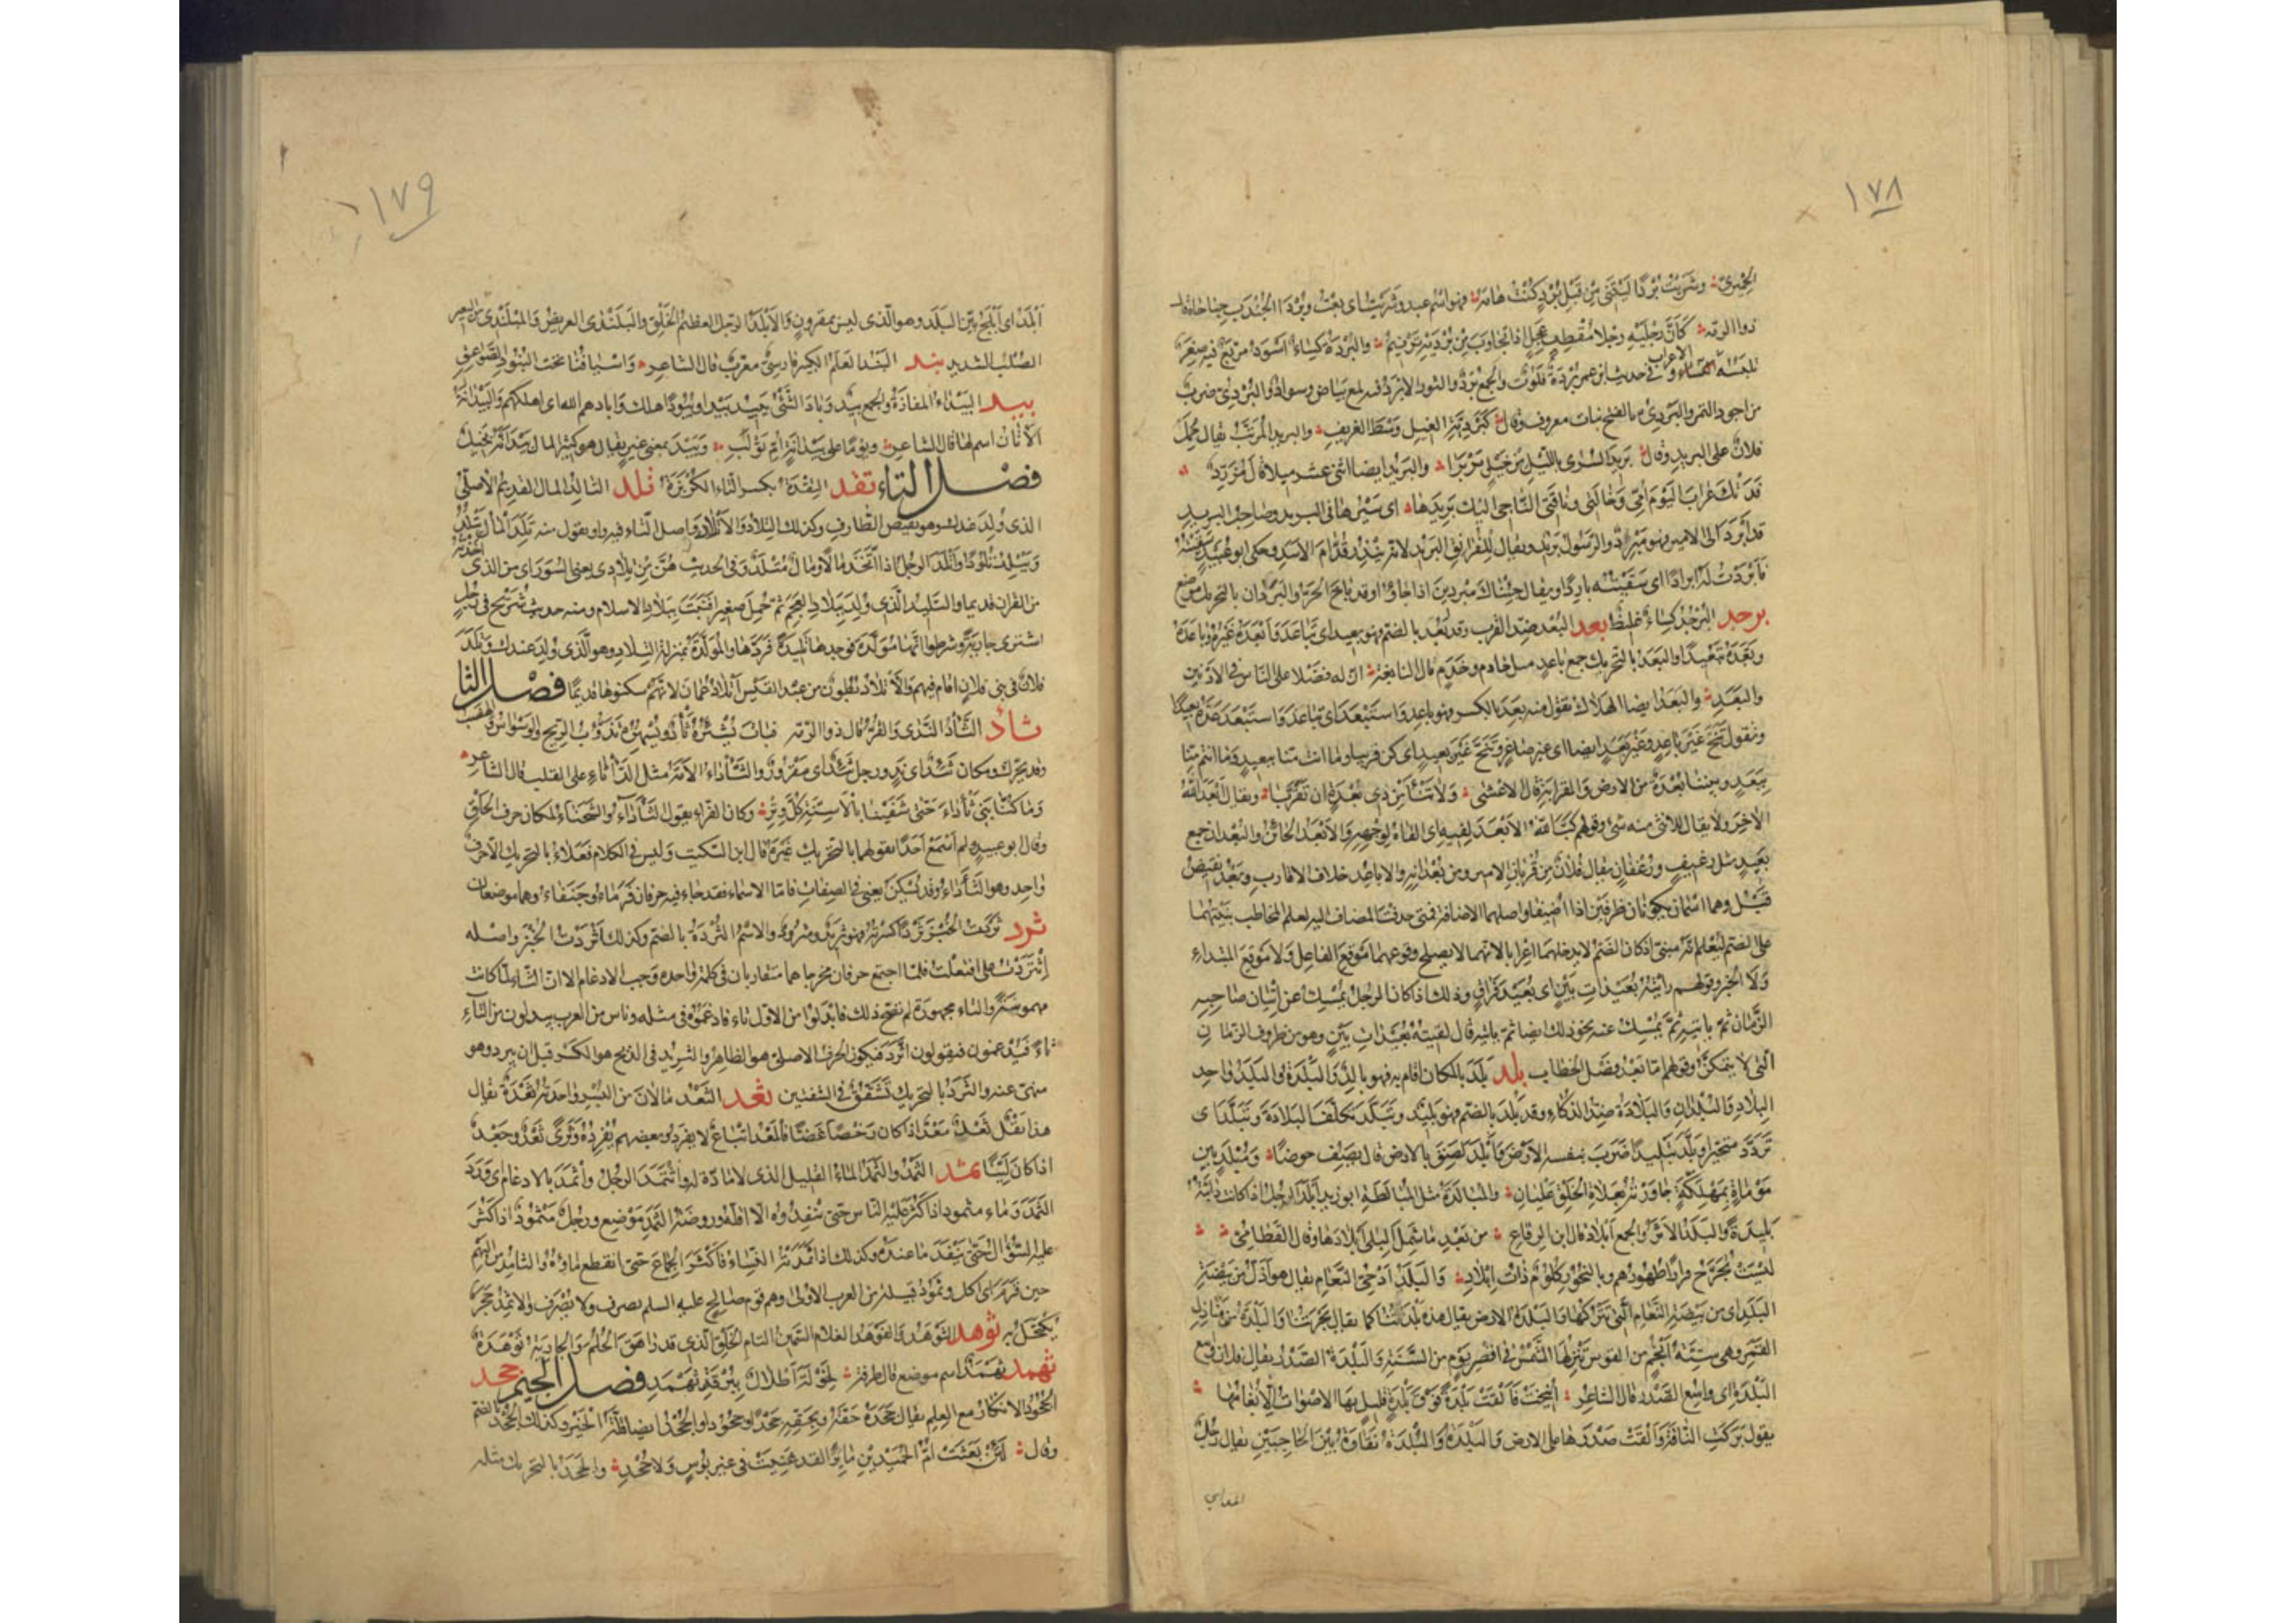 ١٧٨
الحميرى وشريت بردا ليتنى من قبل برد كنت هامه فهو اسم عبد وشريت اى بعت وبردا الجندب جناحاه قال
ذو الرمه كأن رجليه رجلا مقطف عجل اذا تجاوب من برديه ترنيم والبردة كساء اسود مربع فيه صغر
تلبسه الاعراب وفى حديث ابن عمر بردة فلوت والجمع برد والثور الابرد فيه لمع بياض وسواد والبردى ضرب
من اجود التمر والبردى بالفتح نبات معروف وقال كبردية الغيل وسط الغريف والبريد المرتب يقال حمل
فلان على البريد وقال بريد السرى بالليل من خيل بربرا والبريد ايضا اثنى عشر ميلا قال مزرد
فدتك عراب اليوم امى وخالتى وناقتى الناجى اليك بريدها اى سيرها فى البريد وصاحب البريد
قد ابرد الى الامير فهو مبرد والرسول بريد ويقال للفرانق البريد لانه ينذر قدام الاسد وحكى ابو عبيد سقيته
فابردت له ابرادا اى سقيته باردا ويقال جئناك مبردين اذا جاؤا وقد باخ الحر والبردان بالتحريك موضع
برجد البرجد كساء غليظ بعد البعد ضد القرب وقد بعد بالضم فهو بعيد اى تباعد وابعده غيره وباعده
وبعده تبعيدا والبعد بالتحريك جمع باعد مثل خادم وخدم قال النابغة ان له فضلا على الناس فى الادنين
والبعد والبعد ايضا الهلاك تقول منه بعد بالكسر فهو باعد واستبعد اى تباعد واستبعد عده بعيدا
وتقول تنح غير باعد وغير بعد ايضا اى غير صاغر وتنح غير بعيد اى كن قريبا وما انت منا ببعيد وما انتم منا
ببعد وبيننا بعدة من الارض والقرابة قال الاعشى ولا تنأ من ذى بعدة ان تقربا ويقال ابعد الله
الاخر ولا يقال للانثى منه شئ وقولهم كب الله الابعد لفيه اى القاه لوجهه والابعد الخائن والبعدان جمع
بعيد مثل رغيف ورغفان يقال فلان من قربان الامير ومن بعدانه والاباعد خلاف الاقارب وبعد نقيض
قبل وهما اسمان يكونان ظرفين اذا اضيفا واصلهما الاضافة فمتى حذفت المضاف اليه لعلم المخاطب بنيتهما
على الضم ليعلم انه مبنى اذ كان الضم لا يدخلهما اعرابا لانهما لا يصلح وقوعهما موقع الفاعل ولا موقع المبتداء
ولا الخبر وقولهم رايته بعيدات بين اى بعيد فراق وذلك اذا كان الرجل يمسك عن اتيان صاحبه
الزمان ثم ياتيه ثم يمسك عنه نحو ذلك ايضا ثم ياتيه قال لقيته بعيدات بين وهو من ظروف الزمان
التى لا يتمكن وقولهم اما بعد فصل الخطاب بلد بلد بالمكان اقام به فهو بالد والبلدة والبلد واحد
البلاد والبلدان والبلادة ضد الذكاء وقد بلد بالضم فهو بليد وتبلد تكلف البلادة وتبلد اى
تردد متحيرا وبلد تبليدا ضرب بنفسه الارض وابلد لصق بالارض قال يصف حوضا ومبلد بين
موماة بمهلكة جاوزته بعلاة الخلق عليان والمبالدة مثل المبالطة ابو زيد ابلد الرجل اذا كانت دابته
بليدة والبلد الاثر والجمع ابلاد قال ابن الرقاع من بعد ما شمل البلى ابلادها وقال القطامى
ليست تجرح فرارا ظهورهم وبالنحور كلوم ذات ابلاد والبلد ادحى النعام يقال هو اذل من بيضة
البلد اى من بيضة النعام التى تتركها والبلدة الارض يقال هذه بلدتنا كما يقال بحرتنا والبلدة من منازل
القمر وهى ستة انجم من القوس تنزلها الشمس فى اقصر يوم من السنة والبلدة الصدر يقال فلان واسع
البلدة اى واسع الصدر قال الشاعر انيخت فالقت بلدة فوق بلدة قليل بها الاصوات الا بغامها
يقول بركت الناقة والقت صدرها على الارض والبلدة والبلدة نقاوة بين الحاجبين يقال رجل
١٧٩
ابلد اى ابلج بين البلد وهو الذى ليس بمقرون والابلد الرجل العظيم الخلق والبلندى العريض والمبلندى من البعير
الصلب الشديد بند البند العلم الكبير فارسى معرب قال الشاعر واسيافنا تحت البنود الصواعق
بيد البيداء المفازة والجمع بيد وباد الشئ يبيد بيدا وبيودا هلك وابادهم الله اى اهلكهم والبيدانة
الاتان اسم لها قال الشاعر ويوما على بيدانة ام تولب وبيد بمعنى غير يقال هو كثير المال بيد انه بخيل
فصل التاء تقد التقدة بكسر التاء الكزبرة تلد التالد المال القديم الاصلى
الذى ولد عندك وهو نقيض الطارف وكذلك التلاد والاتلاد واصل التاء فيه واو يقول منه تلد المال يتلد
ويتلد تلودا واتلد الرجل اذا اتخذ مالا ومال متلد وفى الحديث هن من تلادى يعنى السور اى من الذى اخذته
من القران قديما والتليد الذى ولد ببلاد العجم ثم حمل صغيرا فنبت ببلاد الاسلام ومنه حديث شريح فى رجل
اشترى جارية وشرطوا انها مولدة فوجدها تليدة فردها والمولدة بمنزلة التلاد وهو الذى ولد عندك وتلد
فلان فى بنى فلان اقام فيهم والاتلاد بطون من عبد القيس اتلاد عمان لانهم سكنوها قديما فصل الثا
ثأد الثأد الندى والقر قال ذو الرمه فبات يشئزه ثأد ويسهره تذؤب الريح والوسواس والهضب
وقد يحرك ومكان ثئد اى ند ورجل ثئد اى مقرور والثأداء الامة مثل الدأثاء على القلب قال الشاعر
وما كنا بنى ثأداء حتى شفينا بالاسنة كل وتر وكان الفراء يقول الثأداء والسحناء لمكان حرف الحلق
وقال ابو عبيد ولم اسمع احدا يقولهما بالتحريك غيره قال ابن السكيت وليس فى الكلام فعلاء بالتحريك الا حرف
واحد وهو الثأداء وقد يسكن يعنى فى الصفات فاما الاسماء فقد جاء فيه حرفان قرماء وجنفاء وهما موضعان
ثرد ثردت الخبز ثردا كسرته فهو ثريد ومثرود والاسم الثردة بالضم وكذلك اثردت الخبز واصله
اثتردت على افتعلت فلما اجتمع حرفان مخرجاهما متقاربان فى كلمة واحدة وجب الادغام الا ان الثاء لما كانت
مهموسة والتاء مجهورة لم يصح ذلك فابدلوا من الاول تاء فادغموه فى مثله وناس من العرب يبدلون من التاء
ثاء فيدغمون فيقولون اثرد فيكون الحرف الاصلى هو الظاهر والتثريد فى الذبح هو الكسر قبل ان يبرد وهو
منهى عنه والثرد بالتحريك تشقق فى الشفتين ثعد الثعد مالان من البسر واحدته ثعدة يقال
هذا بقل ثعد معد اذا كان رخصا غضا فالمعد اتباع لا يفرد وبعضهم يفرده وثرى ثعد وجعد
اذا كان لينا ثمد الثمد والثمد الماء القليل الذى لا مادة له واثتمد الرجل واثمد بالادغام اى ورد
الثمد وماء مثمود اذا كثر عليه الناس حتى ينفدوه الا اقله وروضة الثمد موضع ورجل مثمود اذا كثر
عليه السؤال حتى ينفد ما عنده وكذلك اذا ثمدته النساء فاكثر الجماع حتى انقطع ماؤه والثامد من البهم
حين قرم اى اكل وثمود قبيلة من العرب الاولى وهم قوم صالح عليه السلم يصرف ولا يصرف والاثمد حجر
يكتحل به ثوهد الثوهد والفوهد الغلام السمين التام الخلق الذى قد راهق الحلم والجارية ثوهدة
ثهمد ثهمد اسم موضع قال طرفة لخولة اطلال ببرقة ثهمد فصل الجيم جحد
الجحود الانكار مع العلم يقال جحده حقه وبحقه جحدا وجحودا والجحد ايضا قلة الخير وكذلك الجحد بالضم
وقال لئن بعثت ام الحميدين مائرا لقد غنيت فى غير بؤس ولا جحد والجحد بالتحريك مثله